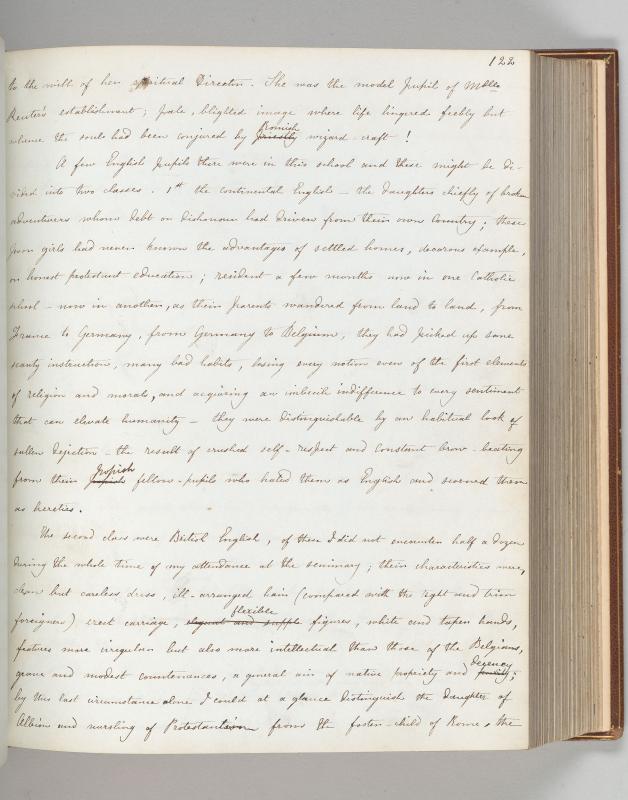 122
to the will of her spiritual Director. She was the model pupil of Mdlle
Reuter's establishment; pale, blighted image where life lingered feebly but
whence the soul had been conjured by Romish wizard-craft!
A few English pupils there were in this school and these might be di-
vided into two classes. 1st the continental English — the daughters chiefly of broken
adventurers whom debt or dishonour had driven from their own Country; these
poor girls had never known the advantages of settled homes, decorous example,
or honest protestant education; resident a few months now in one Catholic
school — now in another, as their parents wandered from land to land, from
France to Germany, from Germany to Belgium, they had picked up some
scanty instruction, many bad habits, losing every notion even of the first elements
of religion and morals, and acquiring an imbecile indifference to every sentiment
that can elevate humanity — they were distinguishable by an habitual look of
sullen dejection — the result of crushed self-respect and constant brow-beating
from their Popish fellow-pupils who hated them as English and scorned them
as heretics.
The second class were British English, of these I did not encounter half a dozen
during the whole time of my attendance at the seminary; their characteristics were,
clean but careless dress, ill-arranged hair (compared with the tight and trim
foreigners) erect carriage, flexible figures, white and taper hands,
features more irregular but also more intellectual than those of the Belgians,
grave and modest countenances, a general air of native propriety and decency;
by this last circumstance alone I could at a glance distinguish the daughter of
Albion and nursling of Protestantism from the foster-child of Rome, the